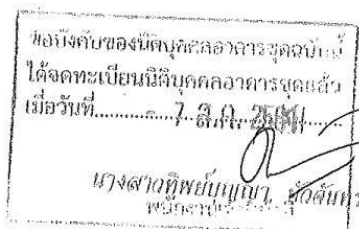 ข้อบังคับของนิติบุคคลอาคารชุดฉบับนี้
ได้จดทะเบียนนิติบุคคลอาคารชุดแล้ว
เมื่อวันที่ 7 ส.ค.
นางสาวทิพย์บุญญา
พนักงานเจ้าหน้าที่